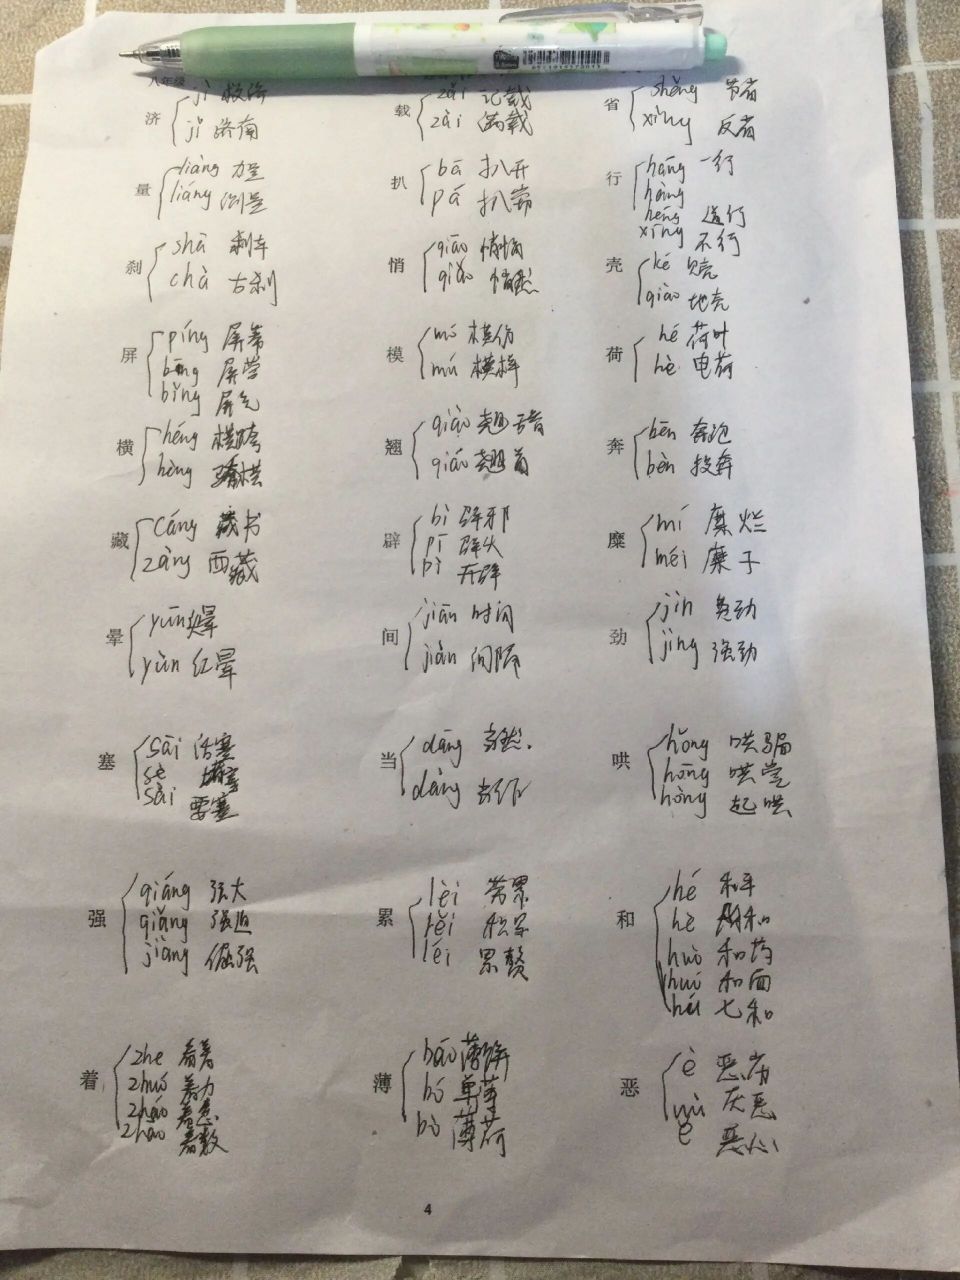 八年级
济 jì 救济
jǐ 济南
载 zǎi 记载
zài 满载
省 shěng 节省
xǐng 反省
量 liàng 力量
liáng 测量
扒 bā 扒开
pá 扒窃
行 háng 一行
hàng
héng 道行
xíng 不行
刹 shā 刹车
chà 古刹
悄 qiāo 悄悄
qiǎo 悄然
壳 ké 贝壳
qiào 地壳
屏 píng 屏幕
bīng 屏营
bǐng 屏气
模 mó 模仿
mú 模样
荷 hé 荷叶
hè 电荷
横 héng 横跨
hèng 骄横
翘 qiào
qiáo 翘首
奔 bēn 奔跑
bèn 投奔
藏 cáng 藏书
zàng 西藏
辟 bì 辟邪
pī 辟火
pì 开辟
糜 mí 糜烂
méi 糜子
晕 yūn
yùn 红晕
间 jiān 时间
jiàn 间隔
劲 jìn 费劲
jìng 强劲
塞 sāi 活塞
sè 堵塞
sài 要塞
当 dāng 当然
dàng 当作
哄 hǒng 哄骗
hōng 哄堂
hòng 起哄
强 qiáng 强大
qiǎng 强迫
jiàng 倔强
累 lèi 劳累
lěi 积累
léi 累赘
和 hé 和平
hè 附和
huò 和药
huó 和面
hú 七和
着 zhe 看着
zhuó 着力
zháo 着急
zhāo 着数
薄 báo 薄饼
bó 单薄
bò 薄荷
恶 è 恶劣
wù 厌恶
ě 恶心
4